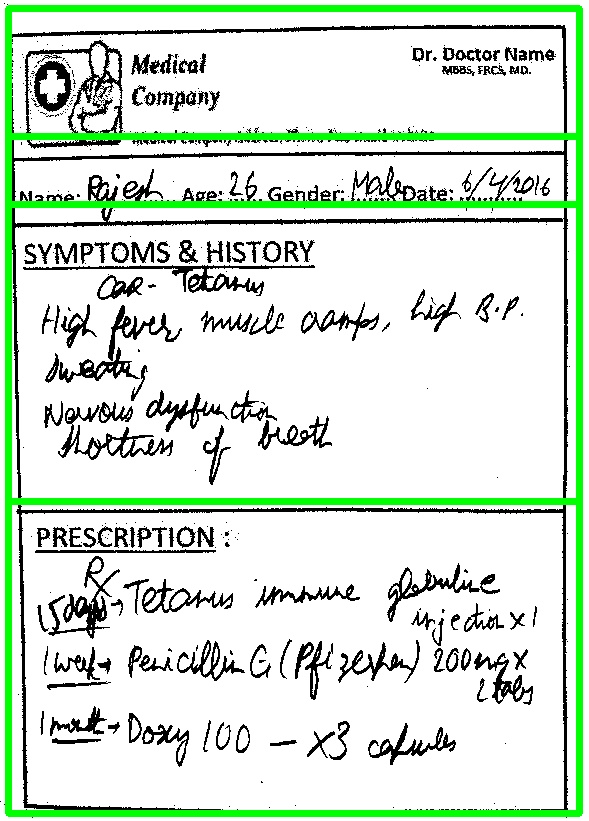 Medical
Company
Dr. Doctor Name
MBBS, FRCS, MD.
Name: Rajesh Age: 26 Gender: Male Date: 6/4/2016
SYMPTOMS & HISTORY
Tetanus
High fever, muscle cramps, high B.P.
Sweating
Nervous dysfunction
Shortness of breath
PRESCRIPTION :
Rx
15 days → Tetanus immune globuline
injection x 1
1 week → Penicillin G (Pfizerpen) 200mg x
2 tabs
1 month → Doxy 100 — x3 capsules